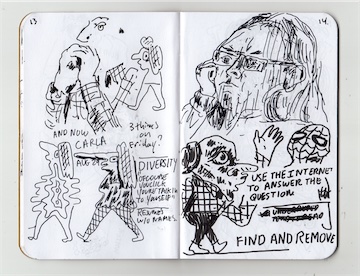 13
AND NOW
CARLA
3 things
on
Friday!
AUG 2
DIVERSITY
UPCOMING
UNCLICK
YOU'RE TALKING
TO YOURSELF
RESUMES
W/O NAMES
14.
USE THE INTERNET
TO ANSWER THE
QUESTION
FIND AND REMOVE